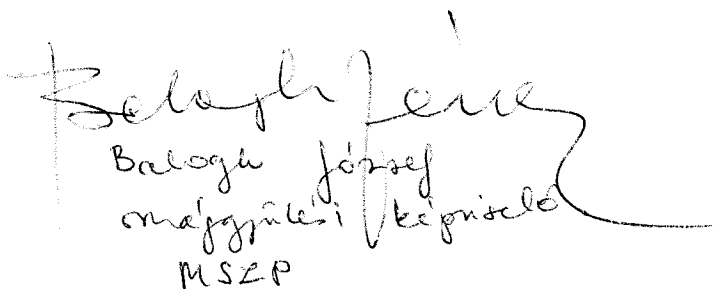 Balogh József
Balogh József
országgyűlési képviselő
MSZP